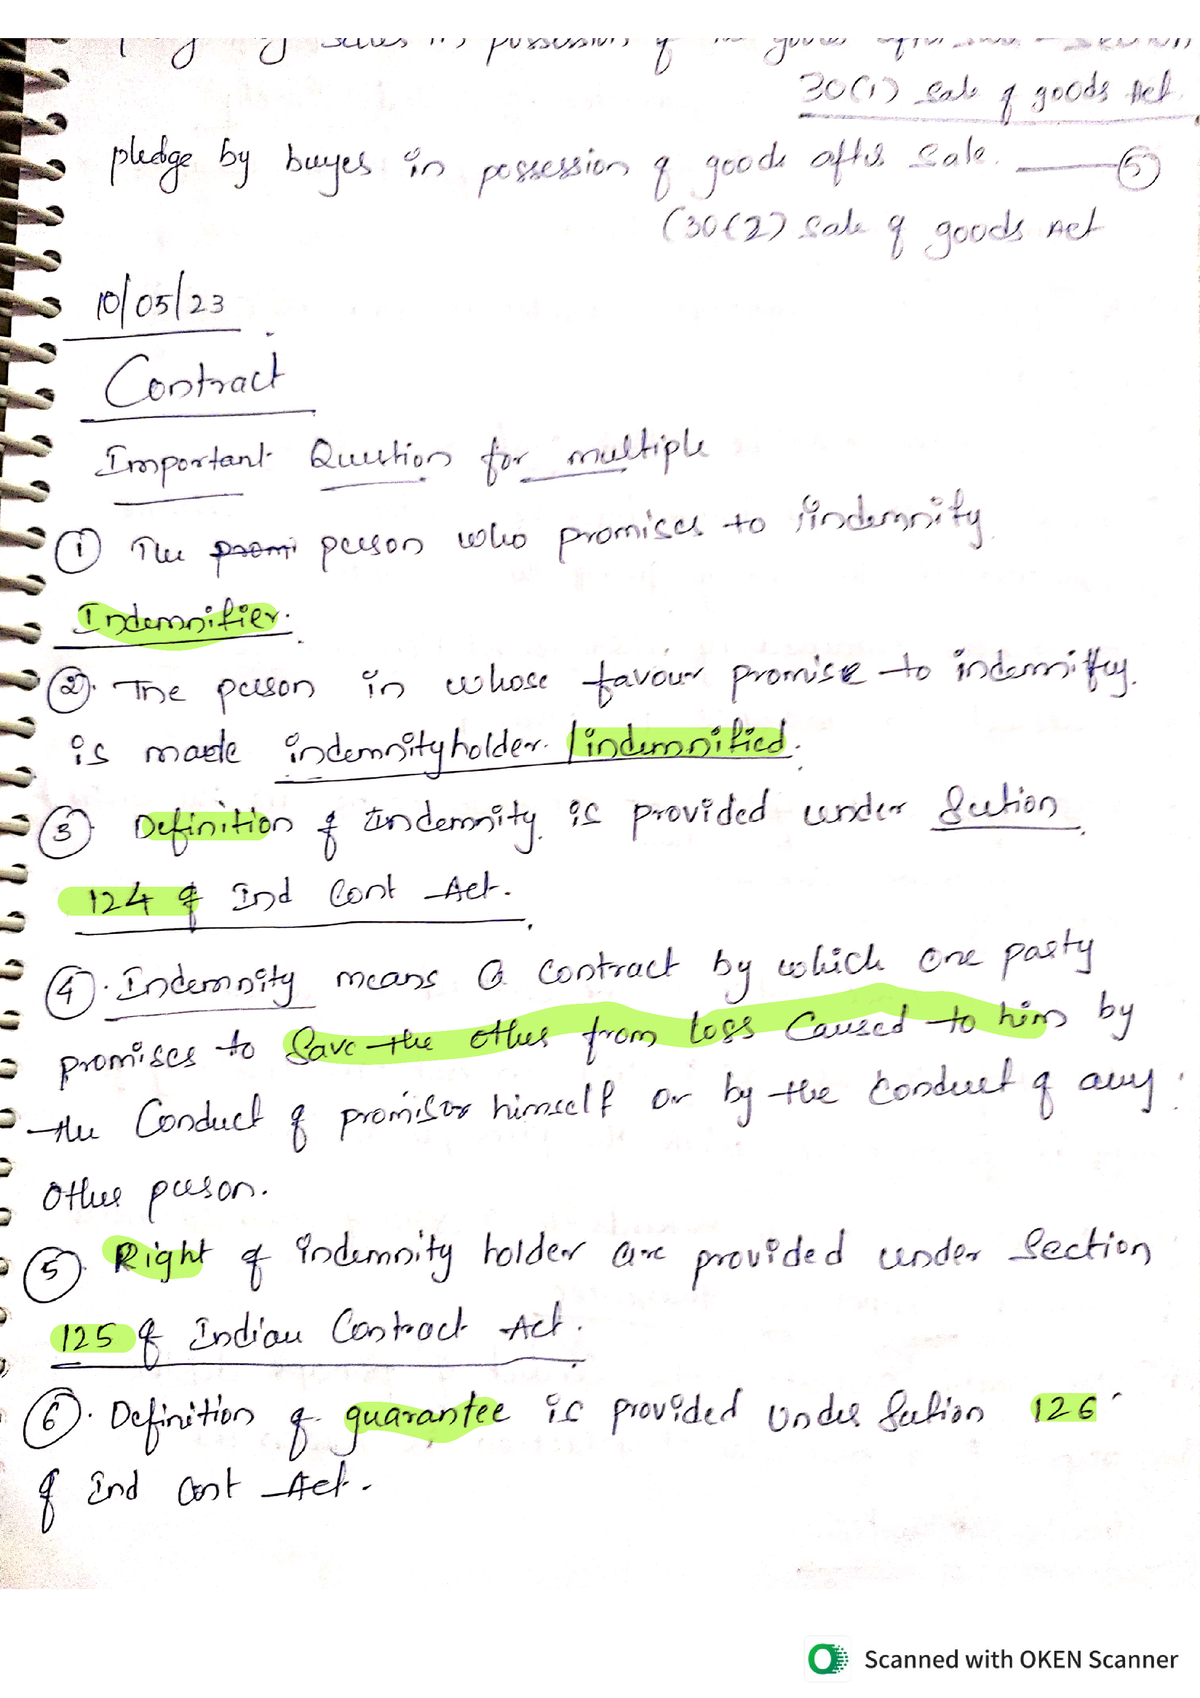 30(1) Sale of goods Act.
pledge by buyes in possession of goods after Sale. — 5
(30(2) Sale of goods Act
10/05/23
Contract
Important Question for multiple
1 The promi person who promises to indemnity.
Indemnifier.
2. The person in whose favour promise to indemnifey.
is made indemnityholder. / indemnified.
3. Definition of Indemnity. is provided under Section
124 of Ind Cont Act.
4. Indemnity means a contract by which one party
promises to Save the other from loss Caused to him by
the Conduct of promisor himself or by the Conduct of any
Other person.
5. Right of indemnity holder are provided under Section
125 of Indian Contract Act.
6. Definition of guarantee is provided Under Section 126
of Ind Cont Act.
Scanned with OKEN Scanner